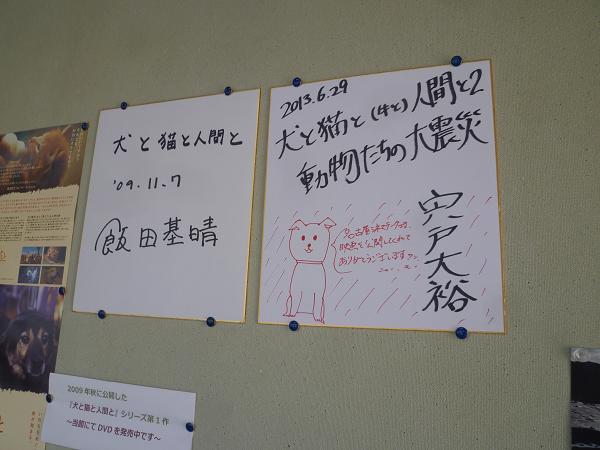 犬と猫と人間と
'09.11.7
飯田基晴
2013.6.29
犬と猫と(牛と)人間と2
動物たちの大震災
宍戸大裕
名古屋シネマテークさま
映画を公開してくれて
ありがとうございます
2009年秋に公開した
『犬と猫と人間と』シリーズ第1作
～当館にてDVDを発売中です～